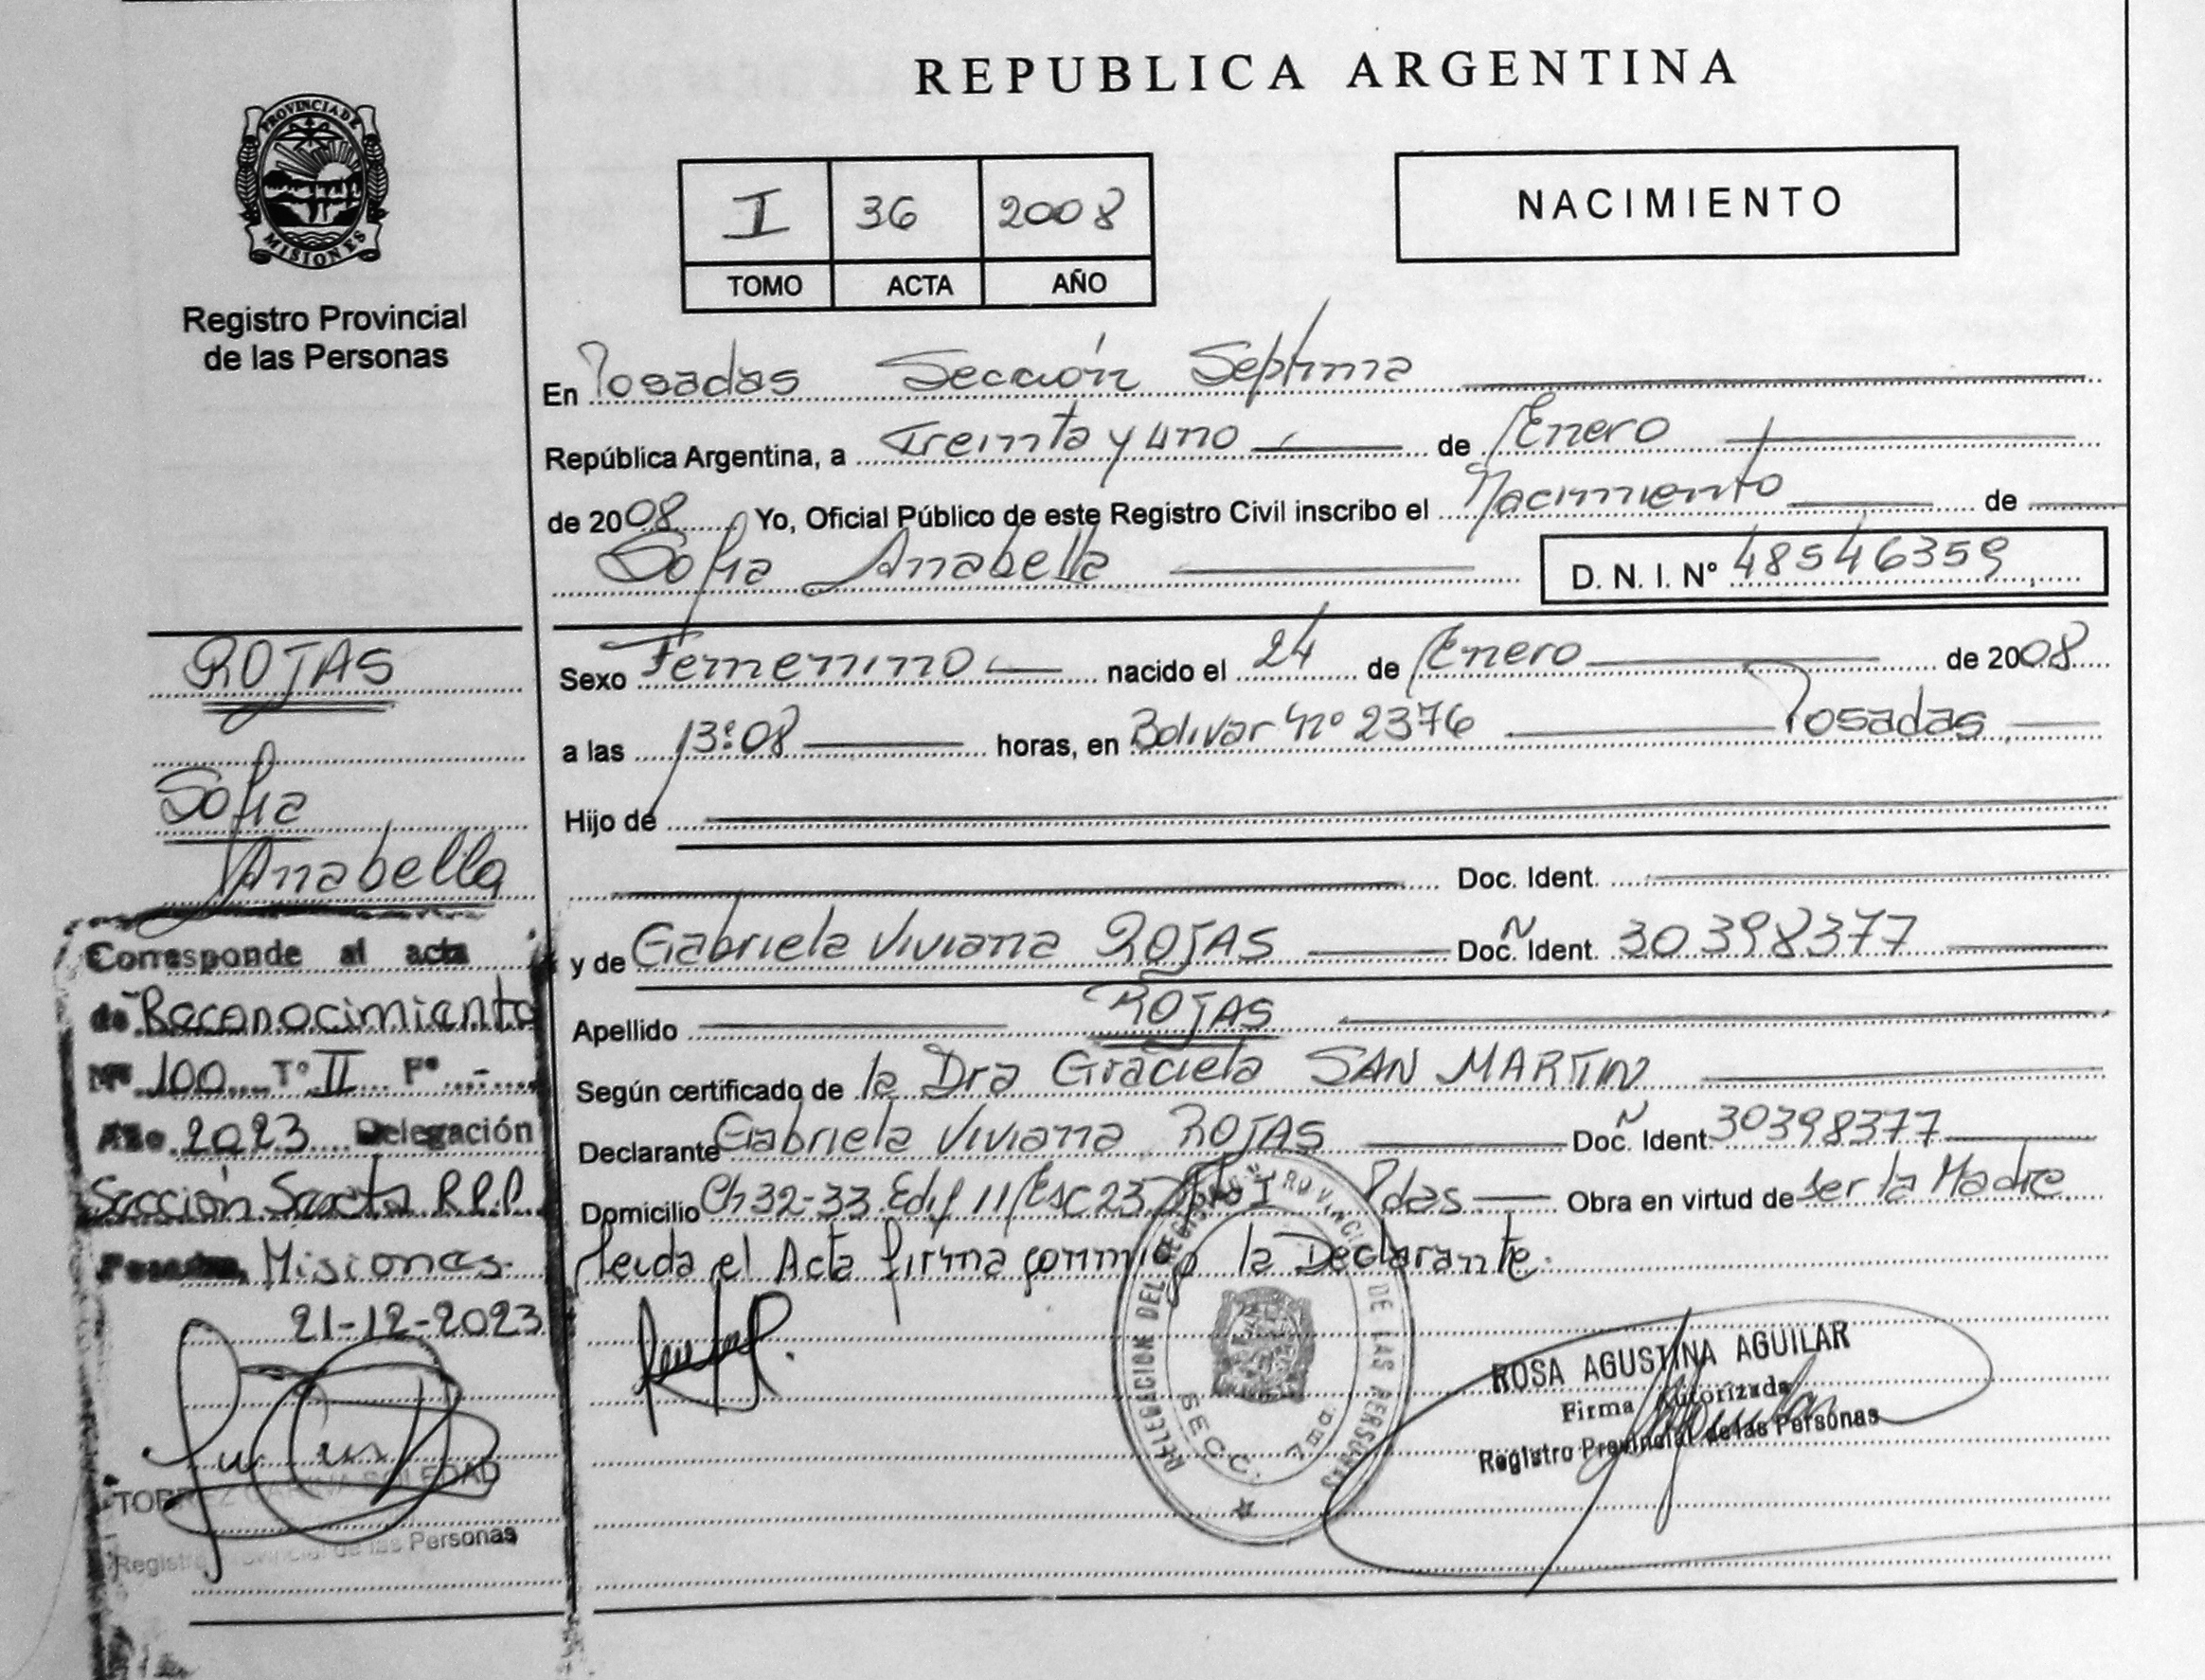 REPUBLICA ARGENTINA
PROVINCIA DE
MISIONES
Registro Provincial
de las Personas
I 36 2008
TOMO ACTA AÑO
NACIMIENTO
En Posadas Sección Septima
República Argentina, a Treinta y uno de Enero
de 2008 Yo, Oficial Público de este Registro Civil inscribo el Nacimiento de
Sofia Anabella D. N. I. Nº 48546359
Sexo Femenino nacido el 24 de Enero de 2008
a las 13:08 horas, en Bolivar nº 2376 Posadas
Hijo de
Doc. Ident.
y de Gabriela Viviana ROJAS Doc. Ident. 30398377
Apellido ROJAS
Según certificado de la Dra Graciela SAN MARTIN
Declarante Gabriela Viviana ROJAS Doc. Ident. 30398377
Domicilio Ch 32-33 Edif 11 Esc 23 Dpto I Pdas Obra en virtud de ser la Madre
leida el Acta firma conmigo la Declarante.
ROJAS
Sofia
Anabella
Corresponde al acta
de Reconocimiento
Nº 100 Tº II Fº -
Año 2023 Delegación
Sección Sexta R.P.P.
Posadas, Misiones
21-12-2023
SOLEDAD
Registro Provincial de las Personas
DELEGACION DEL REGISTRO PROVINCIAL DE LAS PERSONAS
SECC. 7ma.
ROSA AGUSTINA AGUILAR
Firma Autorizada
Registro Provincial de las Personas